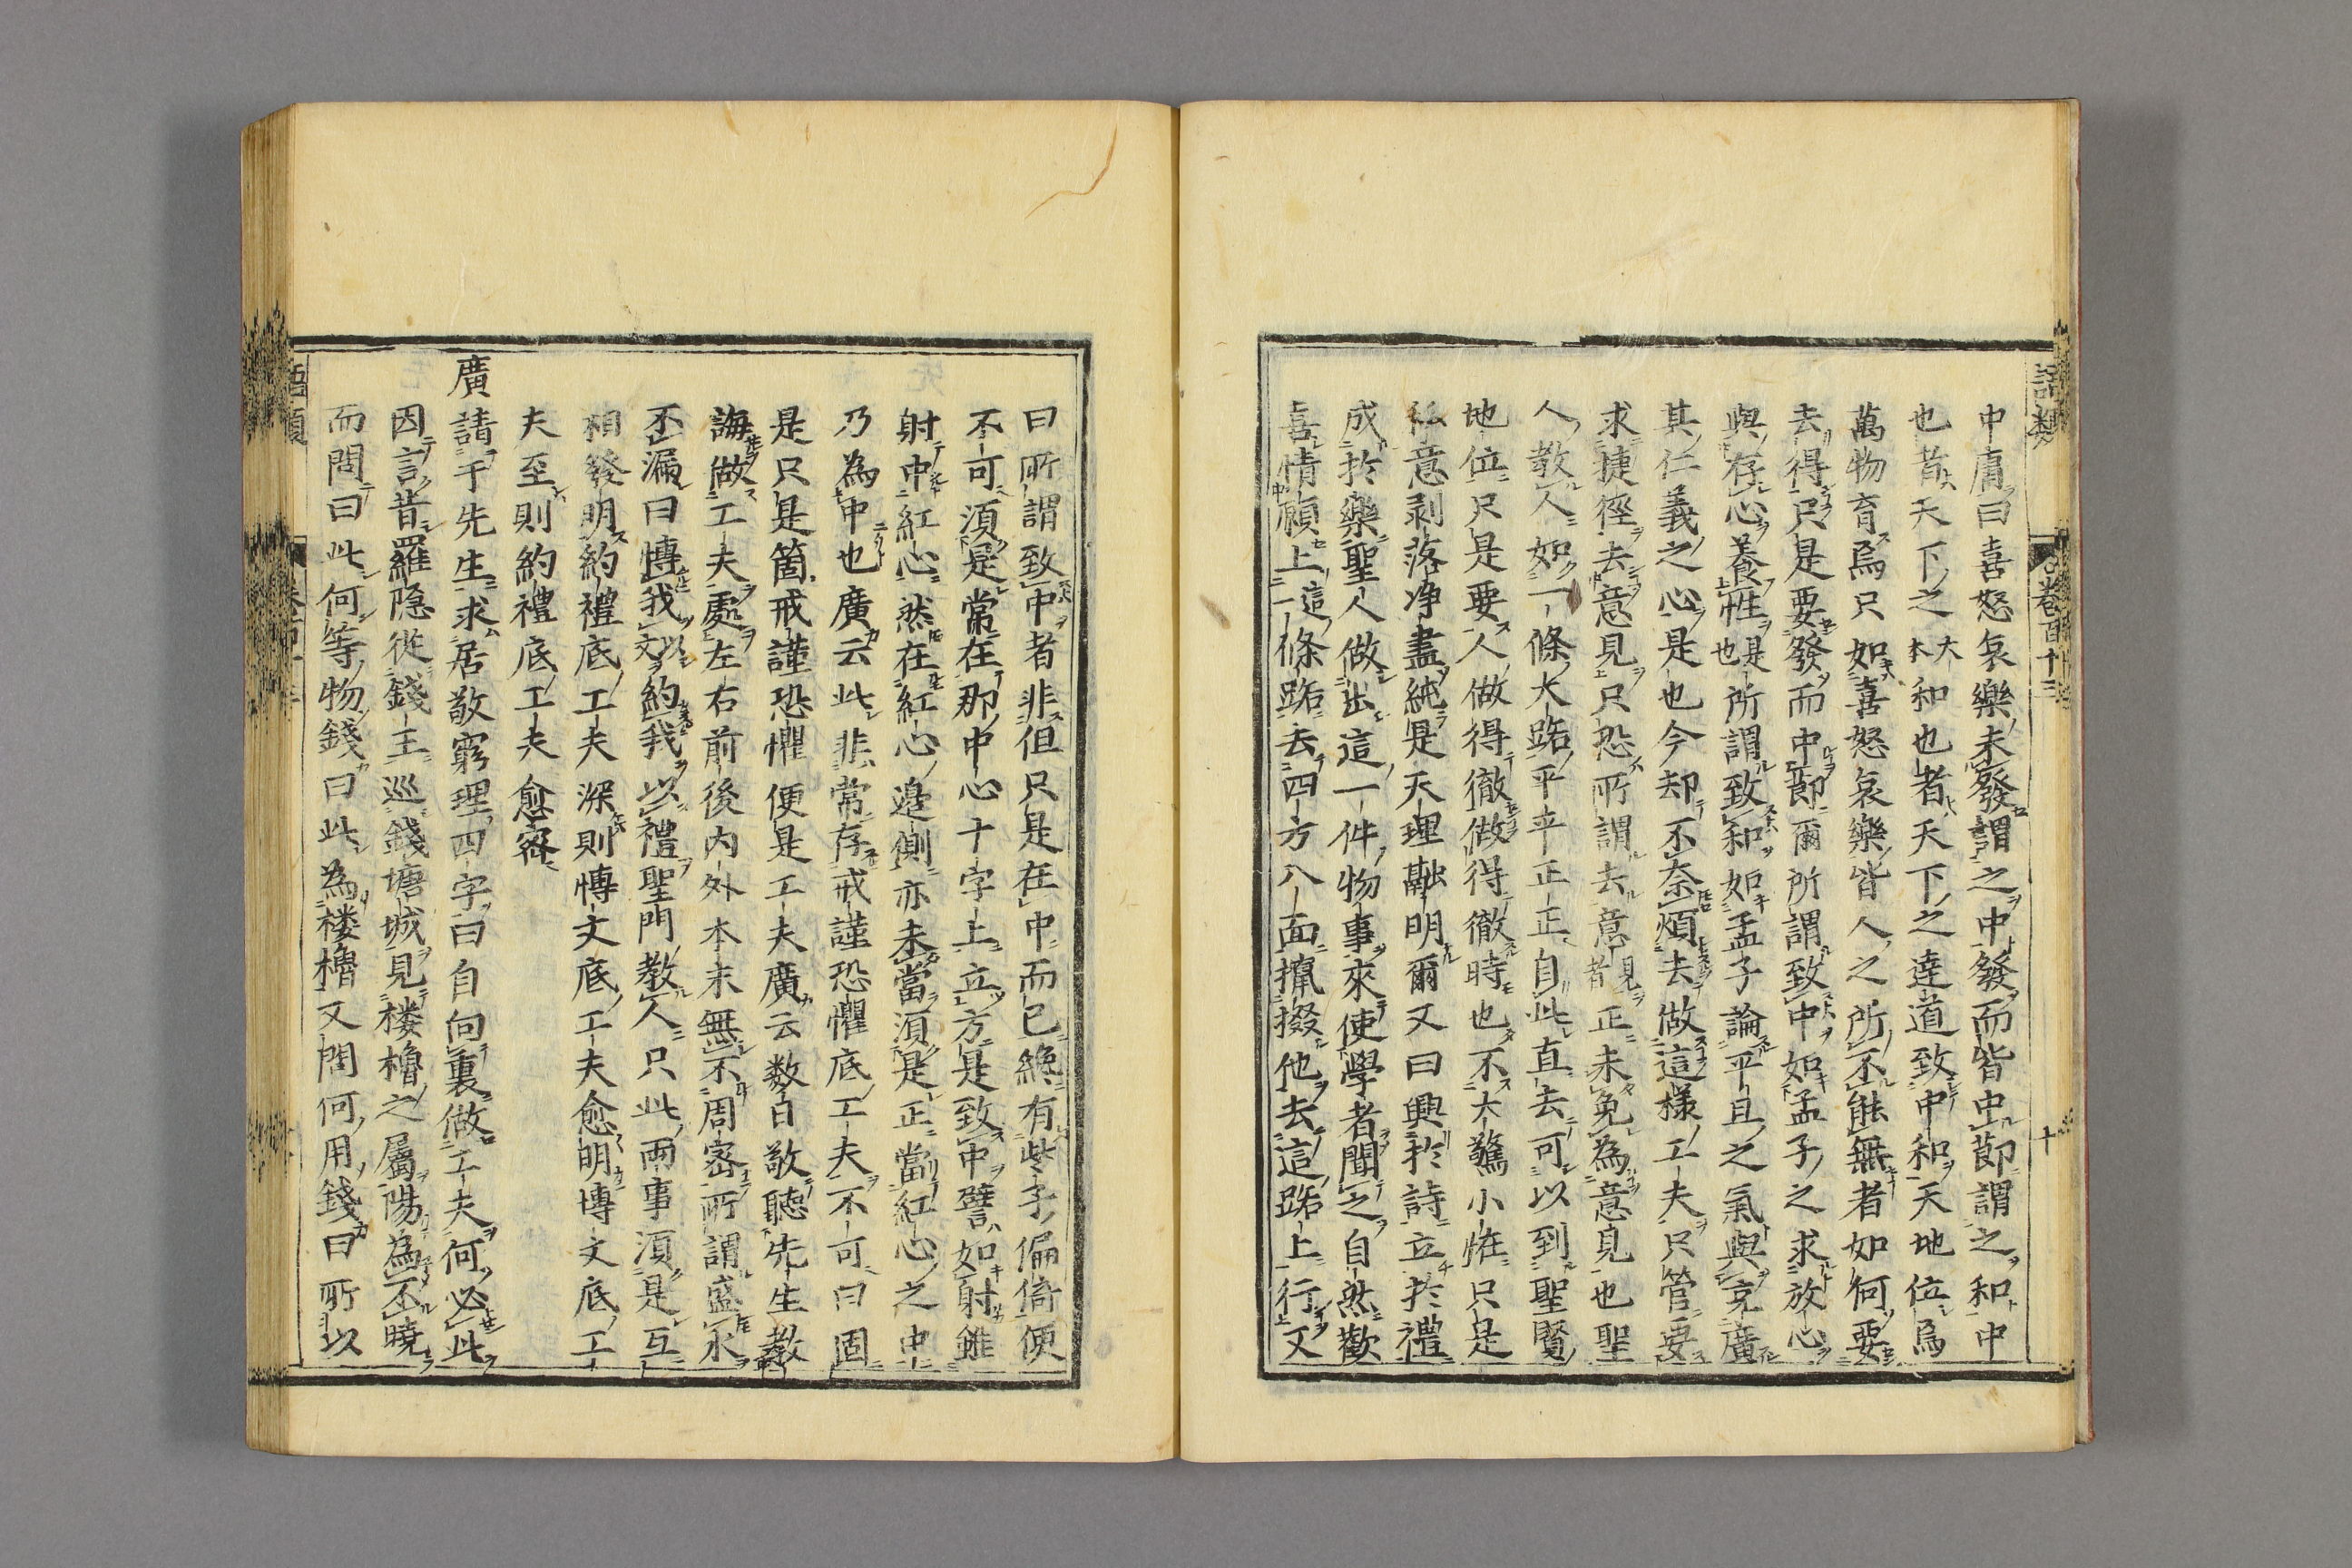 語類
卷百十三
十
中庸曰喜怒哀樂未發謂之中發而皆中節謂之和中
也者天下之大本和也者天下之達道致中和天地位焉
萬物育焉只如喜怒哀樂皆人之所不能無者如何要
去得只是要發而中節爾所謂致中如孟子之求放心
與存心養性是也所謂致和如孟子論平旦之氣與充廣
其仁義之心是也今却不奈煩去做這樣工夫只管要
求捷徑去意見只恐所謂去意見者正未免為意見也聖
人教人如一條大路平平正正自此直去可以到聖賢
地位只是要人做得徹做得徹時也不大驚小恠只是
私意剥落净盡純是天理融明爾又曰興於詩立於禮
成於樂聖人做出這一件物事來使學者聞之自然歡
喜情願上這一條路去四方八面攛掇他去這路上行又
曰所謂致中者非但只是在中而已纔有些子偏倚便
不可須是常在那中心十字上立方是致中譬如射雖
射中紅心然在紅心邊側亦未當須是正當紅心之中
乃為中也廣云此非常存戒謹恐懼底工夫不可曰固
是只是箇戒謹恐懼便是工夫廣云数日敬聽先生教
誨做工夫處左右前後内外本末無不周密所謂盛水
不漏曰博我以文約我以禮聖門教人只此兩事須是互
相發明約禮底工夫深則博文底工夫愈明博文底工
夫至則約禮底工夫愈密
廣請于先生求居敬窮理四字曰自向裏做工夫何必此
因言昔羅隐從錢王巡錢塘城見楼櫓之屬陽為不曉
而問曰此何等物錢曰此為楼櫓又問何用錢曰所以
語類